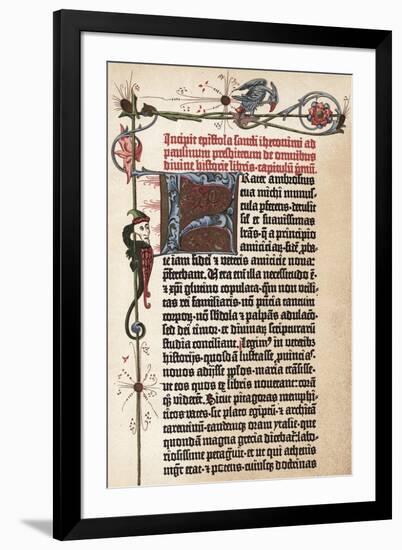 Incipit epistola sancti iheronimi ad
paulinum presbiterum de omnibus
divine historie libris capitulū pmū.
Frater ambrosius
tua michi munus-
cula pferens. detulit
sił et suavissimas
lrās. q̄ a principio
amiciciaꝝ. fidē pba-
te iam fidei et veteris amicicie nova
pferebant. Vera eni illa necessitudo ē.
et xpi glutino copulata. qm non utili-
tas rei familiaris. nō pncia tantum
corpoꝝ. nō sbdola et palpās adulacō.
sed dei timor. et divinaꝝ scripturarum
studia conciliant. Legim⁹ in veterib⁹
historijs. quosdā lustrasse pvincias.
novos adijsse pplos. maria trāsisse.
ut eos quos ex libris noverant: corā
qꝫ viderēt. Sicut pitagoras memphi-
ticos vates. sic plato egiptū. et architā
tarentinū. eandemqꝫ oram ytalie. que
quondā magna grecia dicebat̄: labo-
riosissime peragvit. et ut qui athenis
mgr̄ erat. et potens. cuiusqꝫ doctrinas